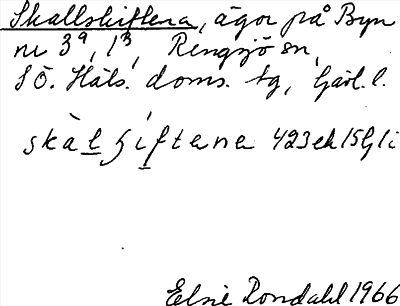 Skallskiftena, ägor på Byn
nr 3⁹, 1³, Rengsjö sn,
SÖ. Häls. doms. tg, Gävl. l.
skàlʃiftena 423 ek 15 G l i
Elsie Rondahl 1966